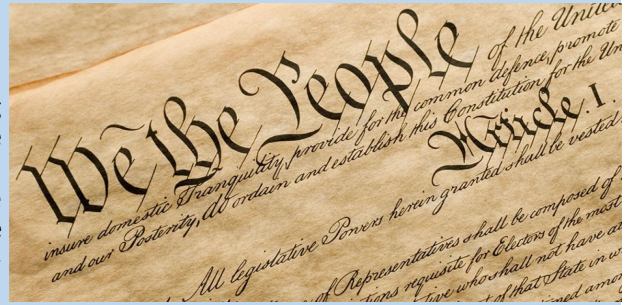 We the People of the United
insure domestic Tranquility, provide for the common defence, promote
and our Posterity, do ordain and establish this Constitution for the Un
Article. I.
All legislative Powers herein granted shall be vested
of Representatives shall be composed of
tions requisite for Electors of the most
who shall not have
of that State in w